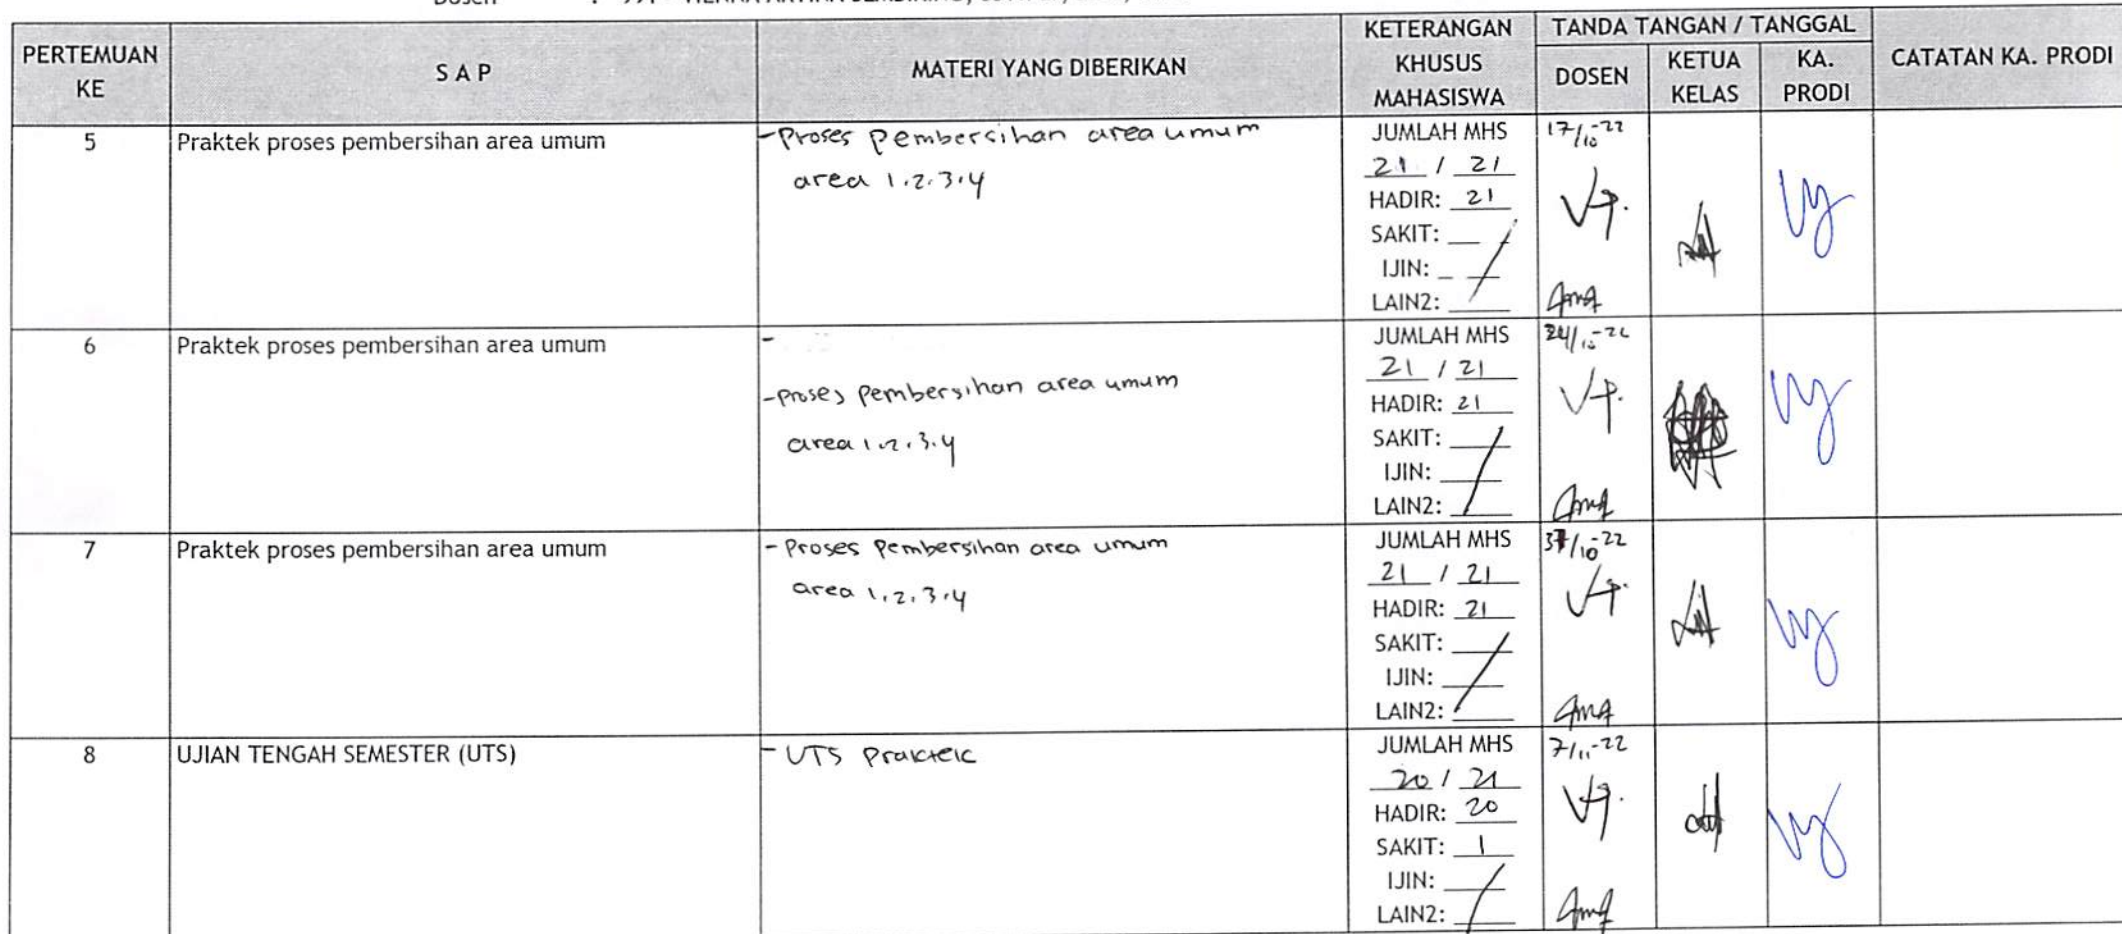 Dosen :
PERTEMUAN KE
S A P
MATERI YANG DIBERIKAN
KETERANGAN KHUSUS MAHASISWA
TANDA TANGAN / TANGGAL
DOSEN
KETUA KELAS
KA. PRODI
CATATAN KA. PRODI
5
Praktek proses pembersihan area umum
- Proses pembersihan area umum
area 1.2.3.4
JUMLAH MHS
21 / 21
HADIR: 21
SAKIT:
IJIN:
LAIN2:
17/10-22
6
Praktek proses pembersihan area umum
-
- Proses pembersihan area umum
area 1.2.3.4
JUMLAH MHS
21 / 21
HADIR: 21
SAKIT:
IJIN:
LAIN2:
7
Praktek proses pembersihan area umum
- Proses Pembersihan area umum
area 1.2.3.4
JUMLAH MHS
21 / 21
HADIR: 21
SAKIT:
IJIN:
LAIN2:
8
UJIAN TENGAH SEMESTER (UTS)
- UTS Praktek
JUMLAH MHS
20 / 21
HADIR: 20
SAKIT: 1
IJIN:
LAIN2:
7/11-22